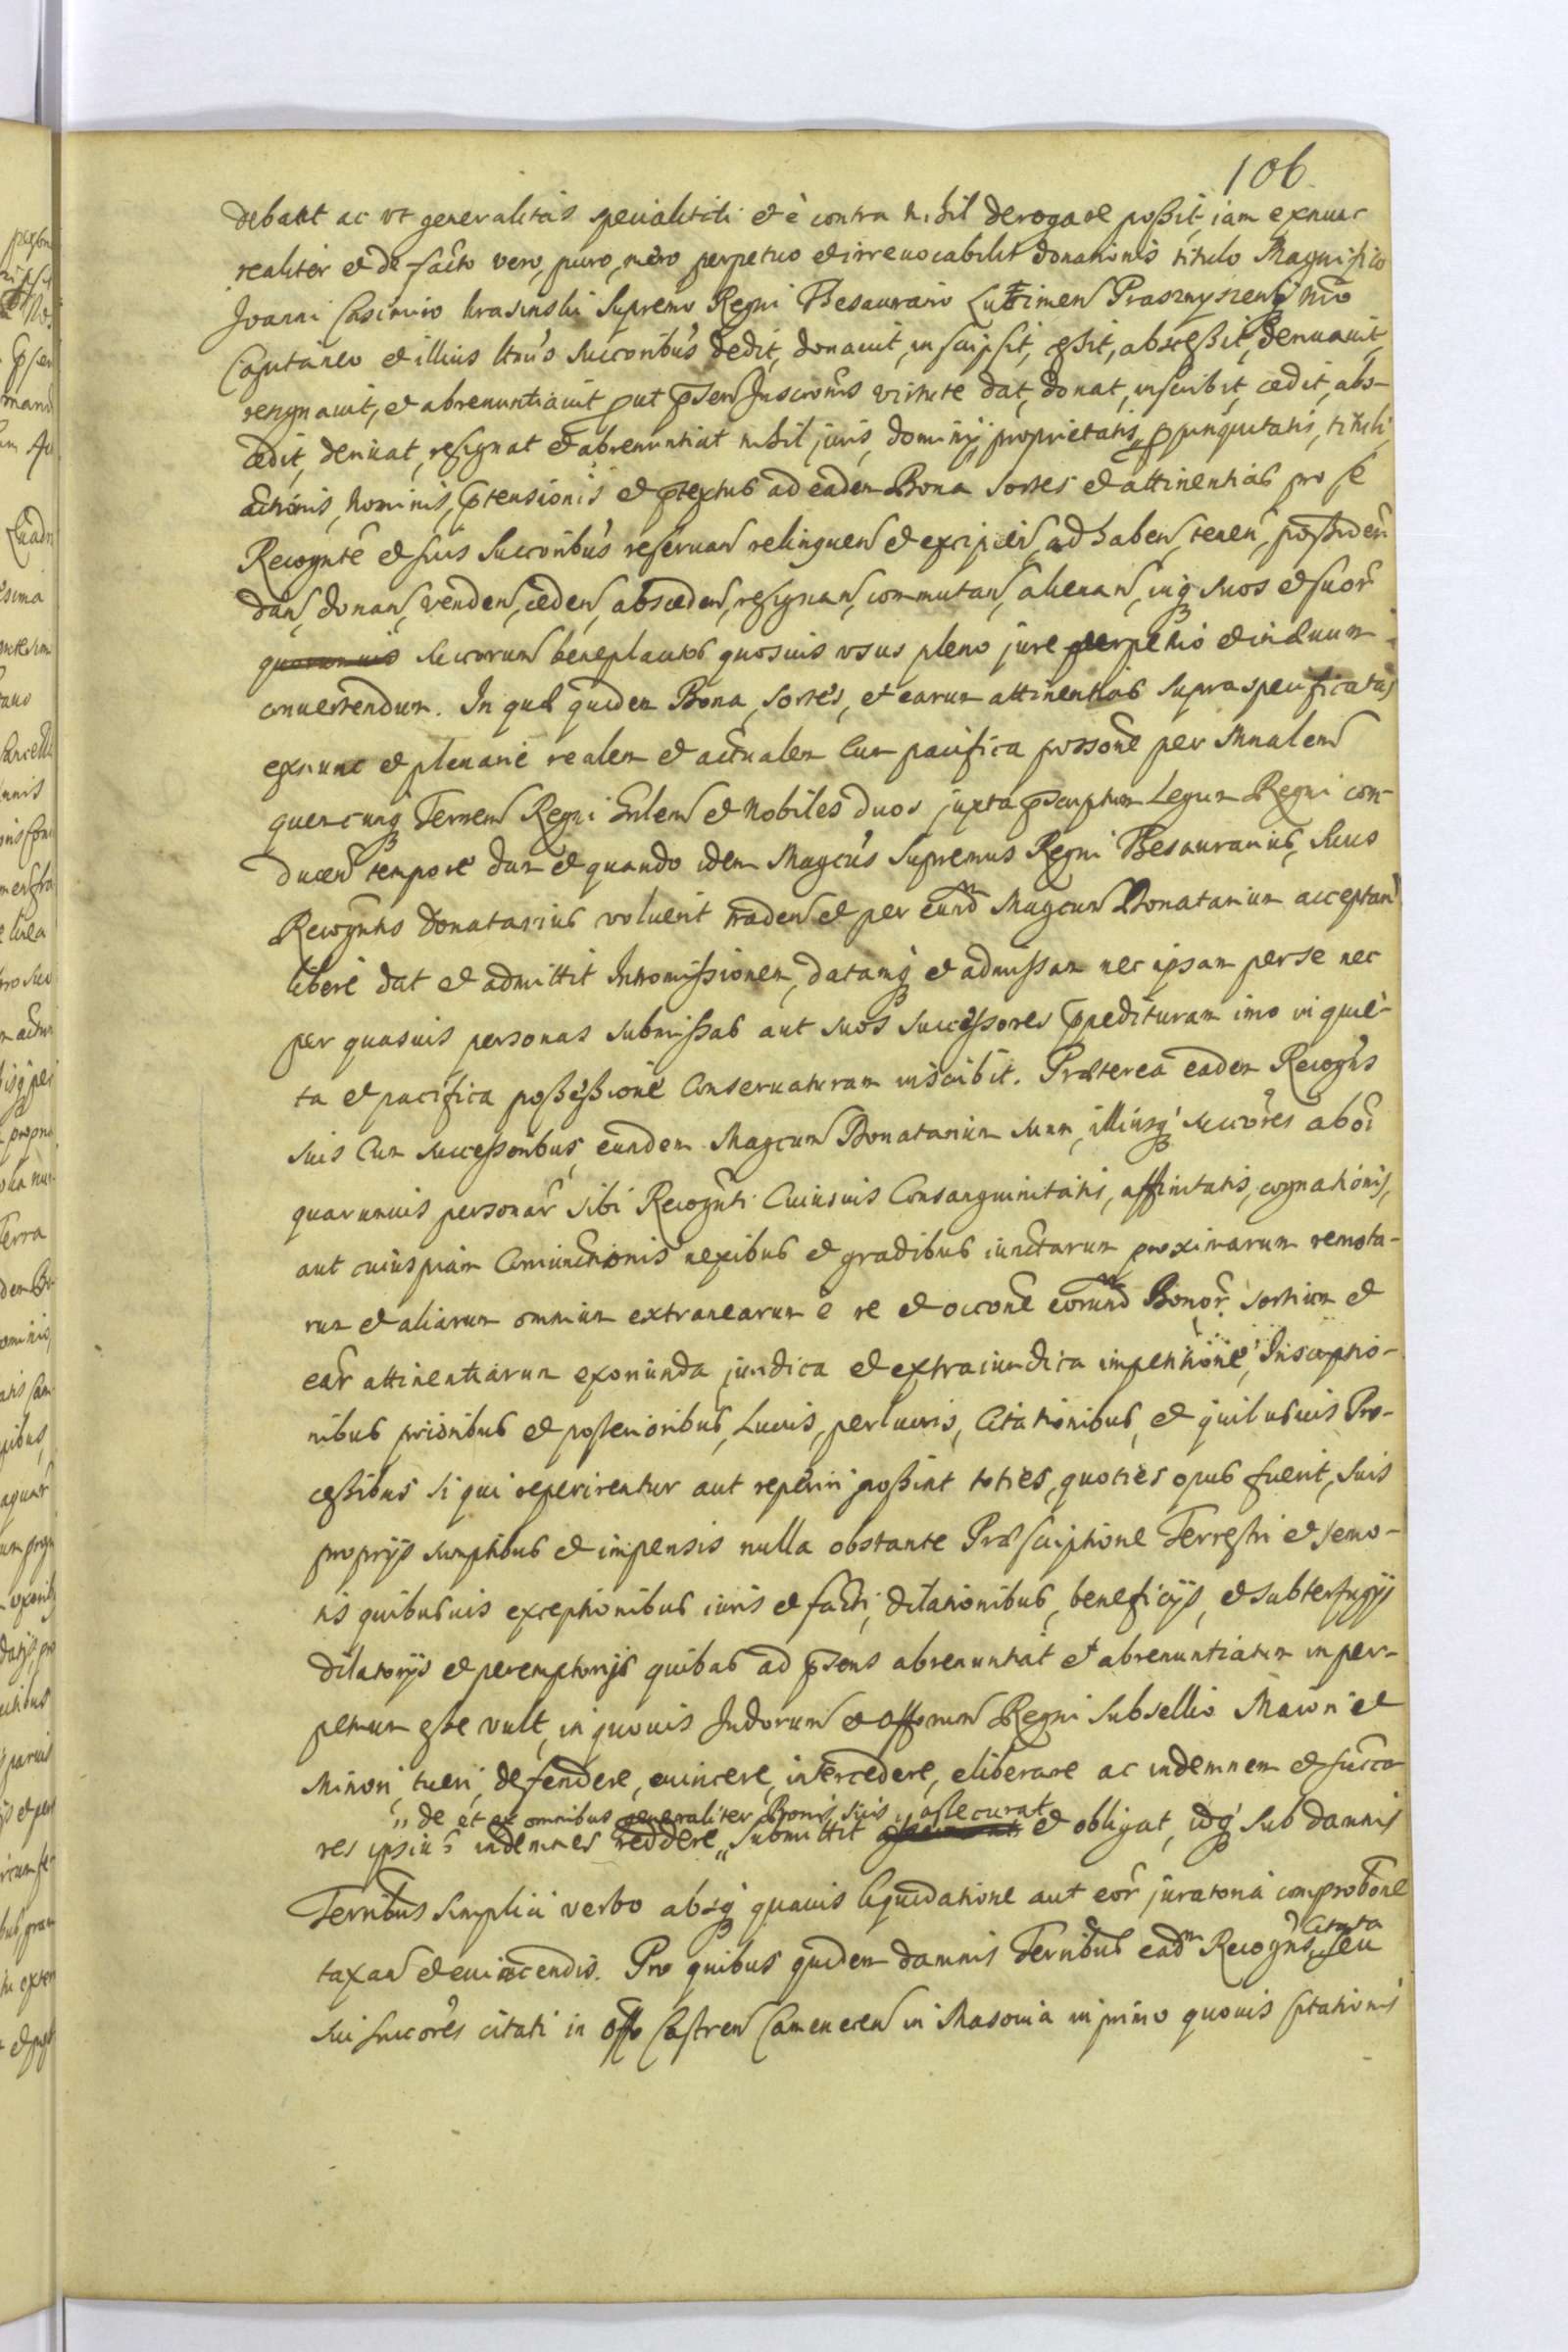 106.
debant ac ut generalitas specialitati et è contra nihil derogare possit, iam exnunc
realiter et de facto vero, puro, mero perpetuo et irreuocabilit donationis titulo Magnifico
Joanni Casimiro Krasinski Supremo Regni Thesaurario Lutimen Prasznyszensq nro
Capitaneo et illius ltnus Succoribus dedit, donauit, inscripsit, cessit, abscessit, deriuauit,
resignauit, et abrenuntiauit put psen Inscronis virtute dat, donat, inscribit, cædit, abs-
cædit, deriuat, resignat et abrenuntiat nihil juris, dominij, proprietatis, ppinquitatis, tituli,
actionis, nominis, ptensionis et ptextus ad eadem Bona sortes et attinentias pro se
Recognte et suis Succoribus reseruan relinquen et excipien, ad haben, tenen, possiden
dan, donan, venden, cæden, abscæden, resignan, commutan, alienan, inq suos et suor
quorumuis succorum beneplacitos quosuis usus pleno jure perpetuo et in æuum
conuertendum. In quæ quidem Bona, sortes, et earum attinentias supraspecificatas
exnunc et plenarie realem et actualem cum pacifica possone per Mnalem
quencunq Terren Regni Gnlem et Nobiles duos juxta pscriptum Legum Regni con-
ducen tempore dum et quando idem Magcus Supremus Regni Thesaurarius, suus
Recogntis Donatarius voluerit traden et per eund Magcum Donatarium acceptan
liberè dat et admittit Intromissionem, datamq et admissam nec ipsam per se nec
per quasuis personas submissas aut suos successores ppedituram imo in quie-
ta et pacifica possessione Conseruaturam inscribit. Præterea eadem Recogns
suis cum successoribus, eundem Magcum Donatarium suum, illiusq succores ab oi
quarumuis personar sibi Recognti Cuiusuis Consanguinitatis, affinitatis, cognationis,
aut cuiuspiam Coniunctionis nexibus et gradibus iunctarum proximarum remota-
rum et aliarum omnium extranearum è re et occone eorund Bonor. sortium et
ear attinentiarum exoriunda juridica et extraiuridica impetitione, Inscriptio-
nibus prioribus et posterioribus, Lucris, perlucris, Citationibus, et quibusuis Pro-
cessibus si qui reperirentur aut reperiri possint toties, quoties opus fuerit, suis
proprijs sumptibus et impensis nulla obstante Præscriptione Terrestri et remo-
tis quibusuis exceptionibus iuris et facti, dilationibus, beneficijs, et subterfugijs
dilatorijs et peremptorijs quibus ad psens abrenuntiat et abrenuntiatum in per-
petuum esse vult, in quouis Judiorum et Offiorum Regni Subsellio Maiori et
Minori, tueri, defendere, euincere, intercedere, eliberare ac indemnem et succo
„ de et ex omnibus generaliter Bonis suis „ assecurat
res ipsius indemnes reddere „ submittit et obligat, idq sub damnis
Terribus simplici verbo absq quauis liquidatione aut eor juratoria comprobone
taxan et euincendis. Pro quibus quidem damnis Terribus ead Recogns citata seu
sui succores citati in Offo Castren Camenecen in Masouia in primo quouis Citationis